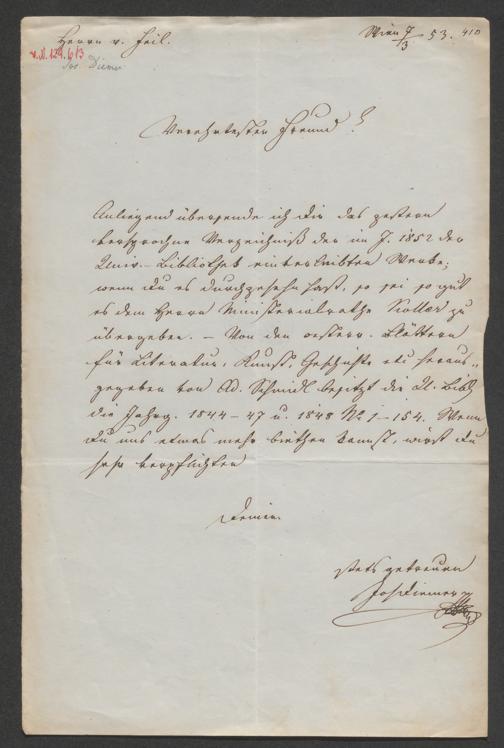 Herrn v. Feil.
Wien 7/3 53. 410
v. N. 129.613
Jos. Diemer
Verehrtester Freund!
Anliegend übersende ich dir das gestern
versprochne Verzeichniß der im J. 1852 der
Univ.-Bibliothek einverleibten Werke;
wenn du es durchgesehn hast, so sei so gut
es dem Herrn Ministerialrathe zu
übergeben. – Von den oesterr. Blättern
für Literatur, Kunst, Geschichte etc heraus-
gegeben von Ad. Schmidl besitzt die U. Bibl.
die Jahrg. 1844–47 u. 1848 No 1–154. Wenn
du uns etwas mehr biethen kannst, wirst du
sehr verpflichten
Deinen
stets getreuen
Jos Diemer